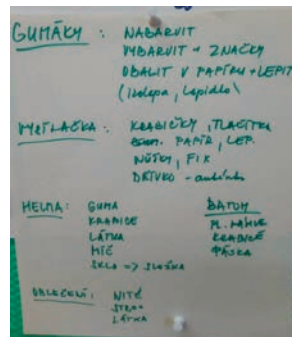 GUMÁKY: NABARVIT
VYBARVIT + ZNAČKY
OBALIT V PAPÍRU + LEPIT
(Izolepa, Lepidlo)
KRABIČKY, TLAČÍTKA
PAPÍR, LEP.
NŮŽKY, FIX
DŘÍVKO -
HELMA: GUMA
KRABICE
LÁTKA
MÍČ
SKLO => SLOŽKA
BATOH
KRABICE
PÁSKA
OBLEČENÍ: NITĚ
LÁTKA